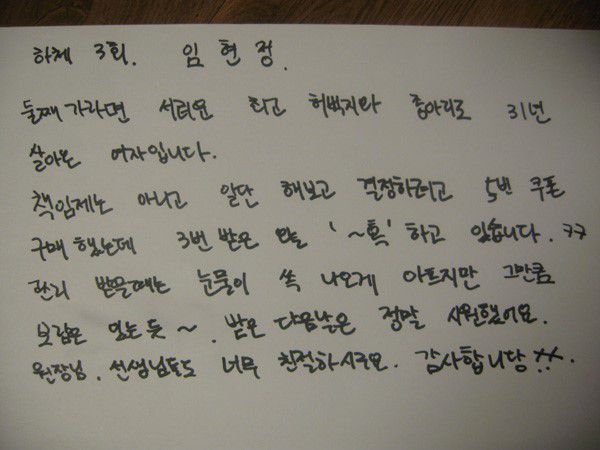 하체 3회. 임현정.
둘째가라면 서러운 최고 허벅지와 종아리로 31년
살아온 여자입니다.
책임제는 아니고 일단 해보고 결정하려고 5번 쿠폰
구매했는데 3번 받은 오늘 '~흑' 하고 있습니다. ㅋㅋ
관리 받을때는 눈물이 쏙 나오게 아프지만 그만큼
보람은 있는 듯~. 받은 다음날은 정말 시원했어요.
원장님. 선생님들도 너무 친절하시구요. 감사합니당